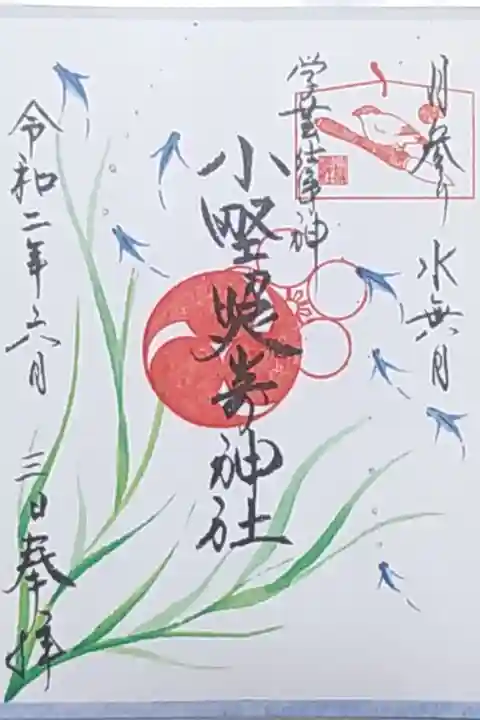 月参り 水無月
学芸仕事神
小野照崎神社
令和二年六月 三日 奉拝